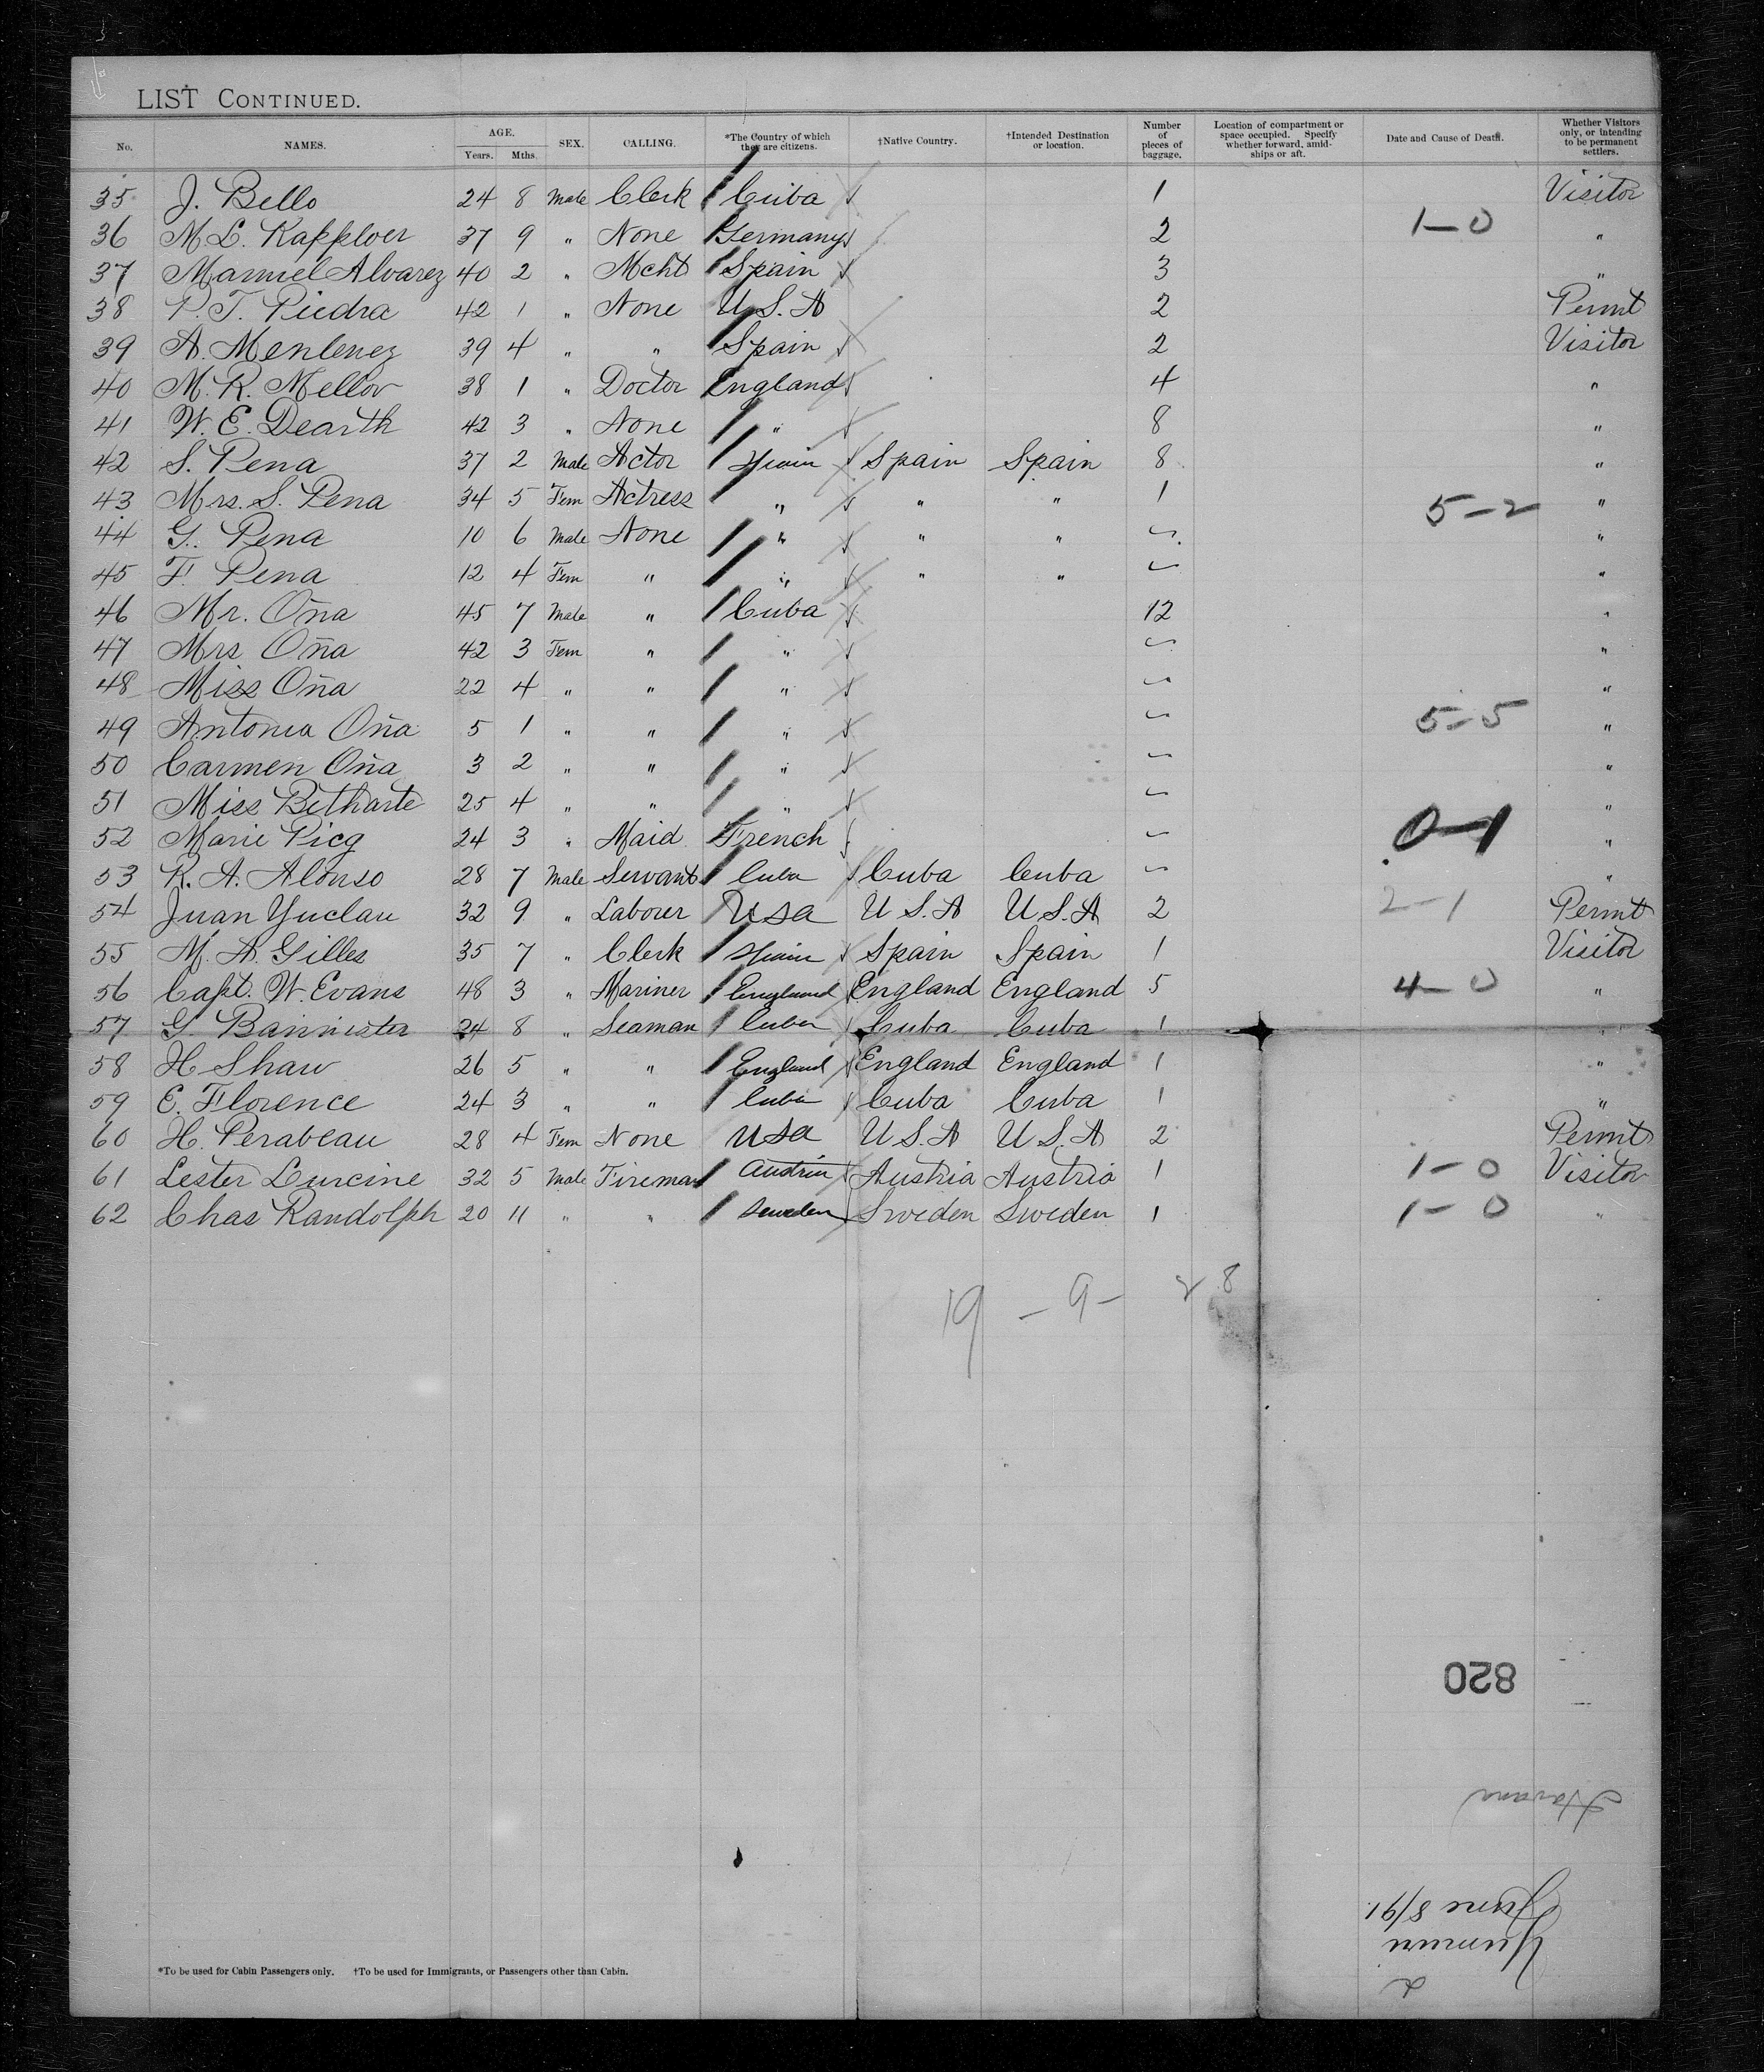 LIST CONTINUED.
No. NAMES. AGE. Years. Mths. SEX. CALLING. *The Country of which they are citizens. †Native Country. †Intended Destination or location. Number of pieces of baggage. Location of compartment or space occupied. Specify whether forward, amidships or aft. Date and Cause of Death. Whether Visitors only, or intending to be permanent settlers.
35 J. Bello 24 8 Male Clerk Cuba 1 Visitor
36 M. L. Kapploer 37 9 " None Germany 2 1-0 "
37 Manuel Alvarez 40 2 " Mcht Spain 3 "
38 P. T. Piedra 42 1 " None U.S.A 2 Permt
39 A. Menlenez 39 4 " " Spain 2 Visitor
40 M. R. Mellor 38 1 " Doctor England 4 "
41 W. E. Dearth 42 3 " None " 8 "
42 S. Pena 37 2 Male Actor Spain Spain Spain 8 "
43 Mrs. S. Pena 34 5 Fem Actress " " " 1 5-2 "
44 G. Pena 10 6 Male None " " " "
45 F. Pena 12 4 Fem " " " " "
46 Mr. Oña 45 7 Male " Cuba 12 "
47 Mrs Oña 42 3 Fem " " "
48 Miss Oña 22 4 " " " "
49 Antonia Oña 5 1 " " " 5-5 "
50 Carmen Oña 3 2 " " " "
51 Miss Betharte 25 4 " " " "
52 Marie Picq 24 3 " Maid French 0-1 "
53 R. A. Alonso 28 7 Male Servant Cuba Cuba Cuba "
54 Juan Yuclau 32 9 " Laborer USA U.S.A U.S.A 2 2-1 Permt
55 M. A. Gilles 35 7 " Clerk Spain Spain Spain 1 Visitor
56 Capt. W. Evans 48 3 " Mariner England England England 5 4-0 "
57 G. Bannister 24 8 " Seaman Cuba Cuba Cuba 1 "
58 H Shaw 26 5 " " England England England 1 "
59 E. Florence 24 3 " " Cuba Cuba Cuba 1 "
60 H. Perabeau 28 4 Fem None USA U.S.A U.S.A 2 Permt
61 Lester Lurcine 32 5 Male Fireman Austria Austria Austria 1 1-0 Visitor
62 Chas Randolph 20 11 " " Sweden Sweden Sweden 1 1-0 "
19 - 9 - 28
820
Havana
June 8/91
Yumuri
*To be used for Cabin Passengers only. †To be used for Immigrants, or Passengers other than Cabin.